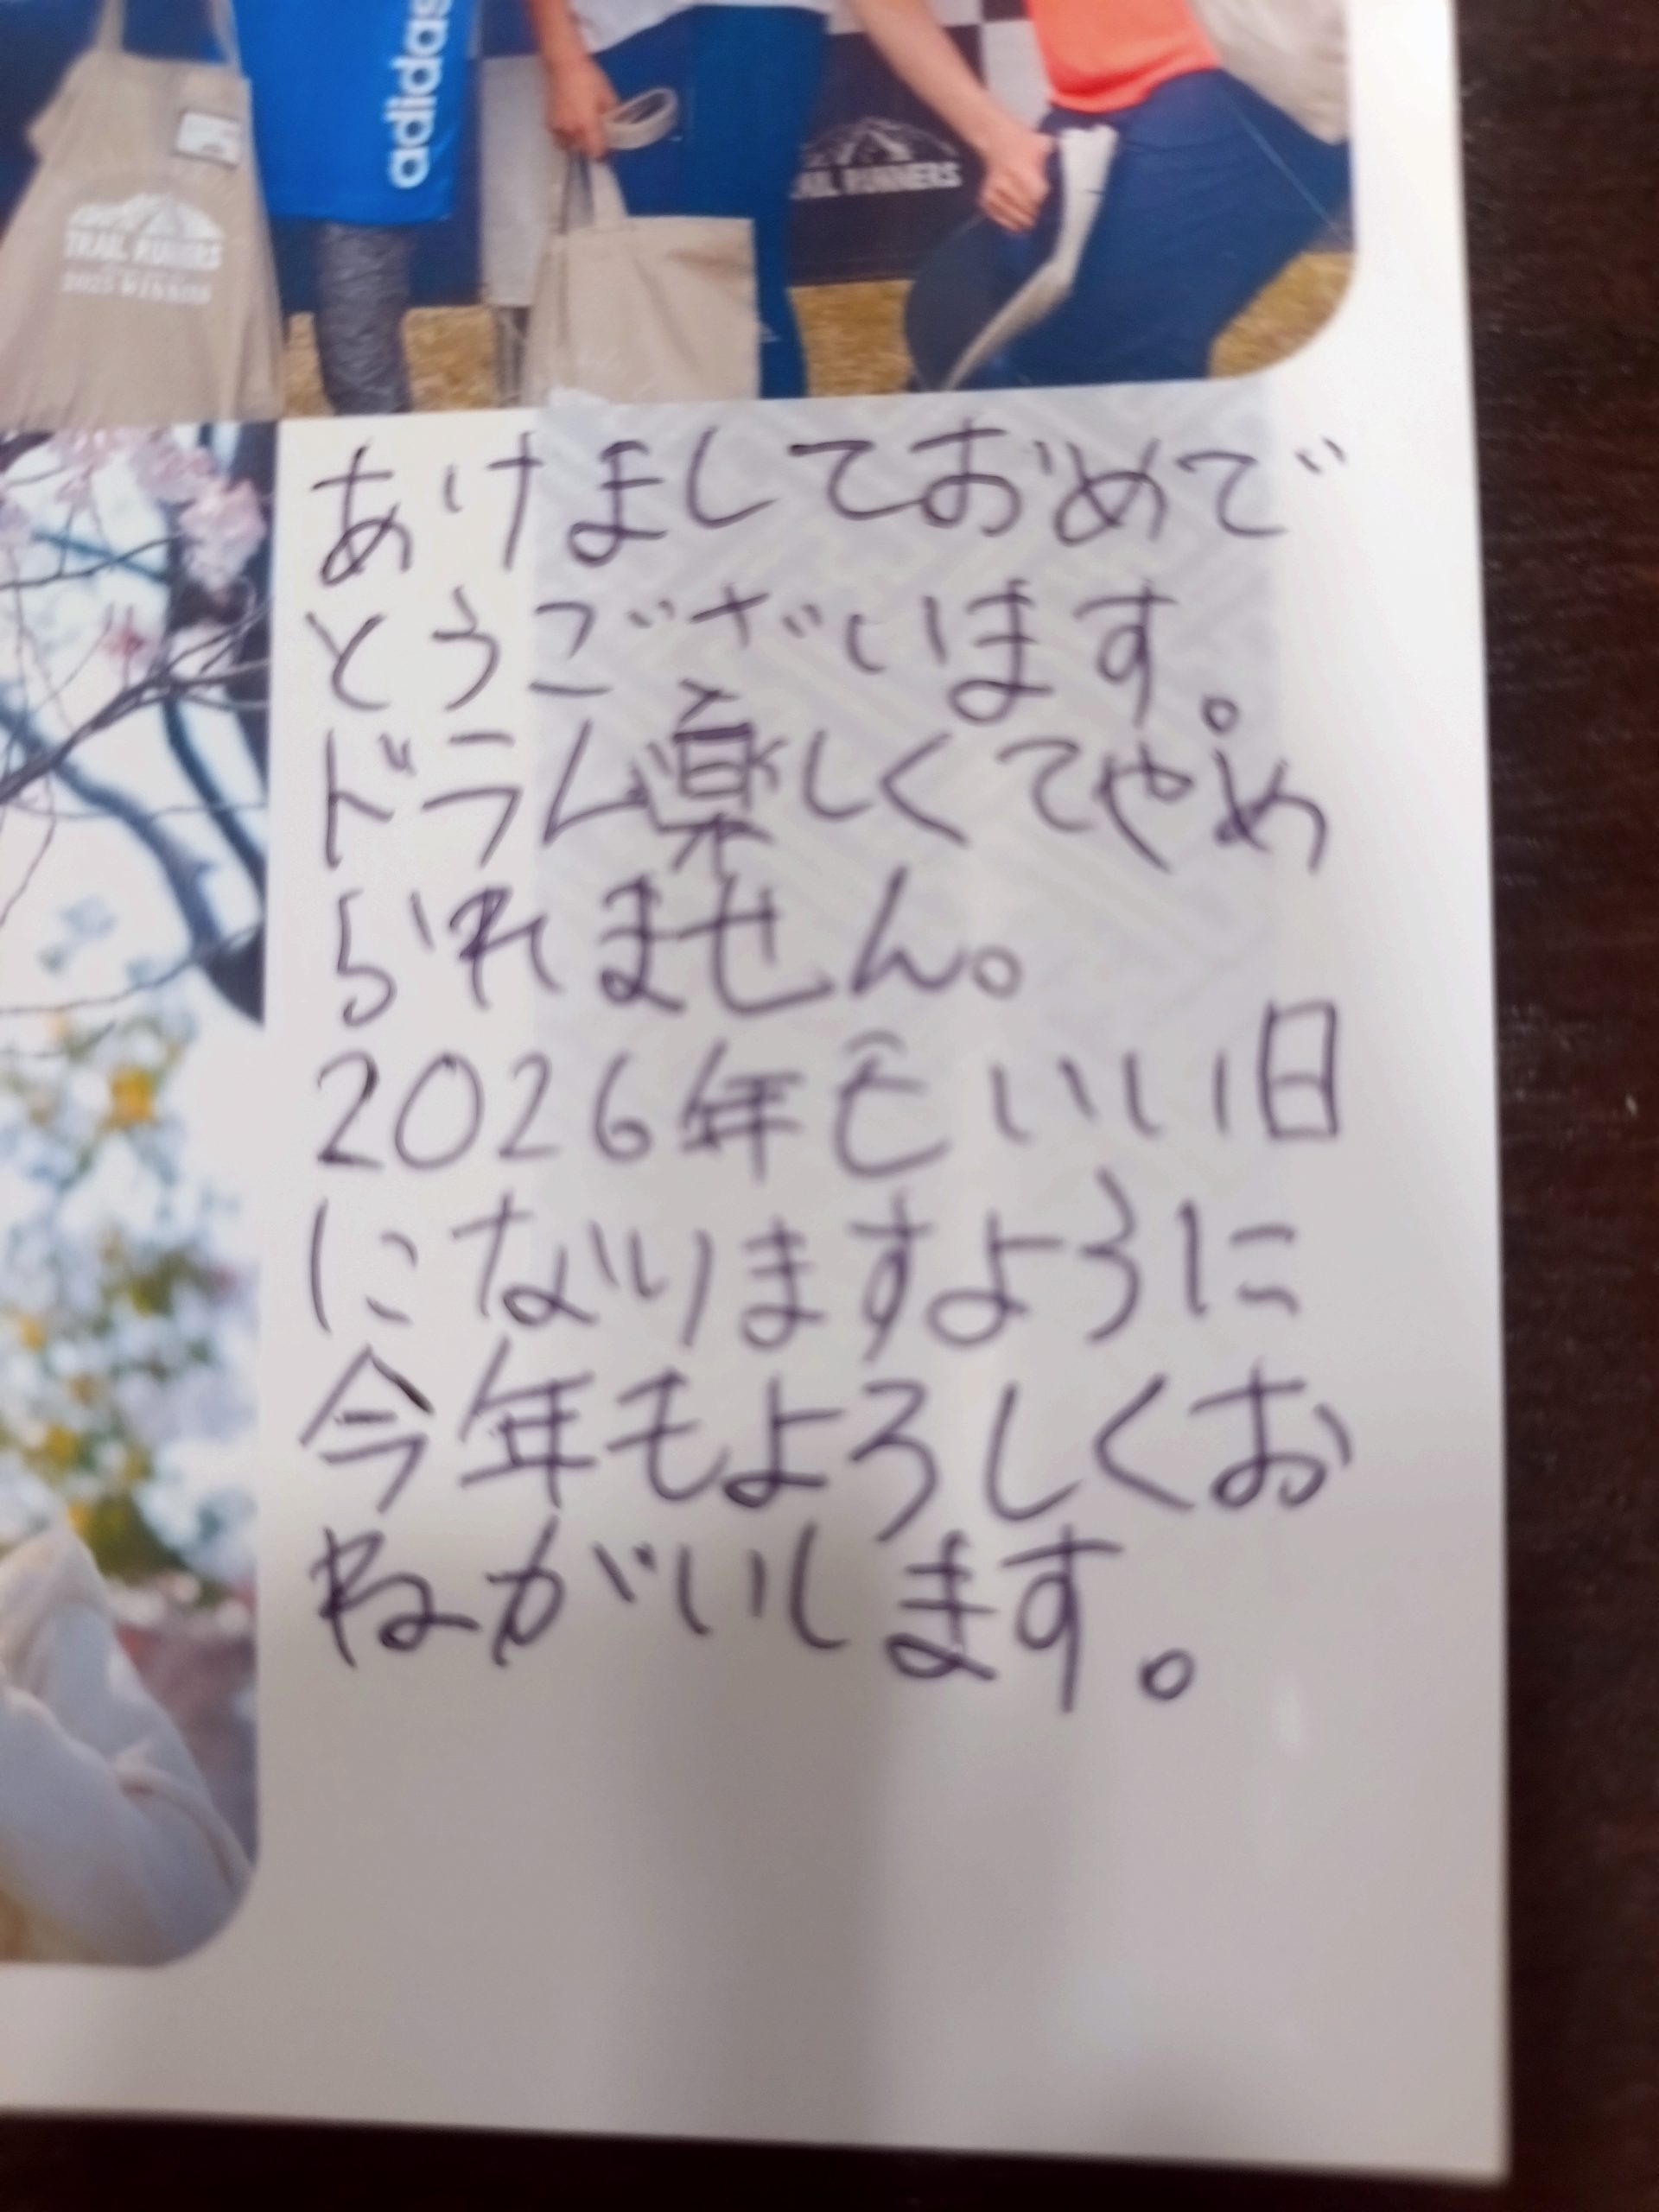 adidas
TRAIL RUNNERS
2025 WINNER
RAIL RUNNERS
あけましておめで
とうございます。
ドラム楽しくてやめ
られません。
2026年もいい日
になりますように
今年もよろしくお
ねがいします。